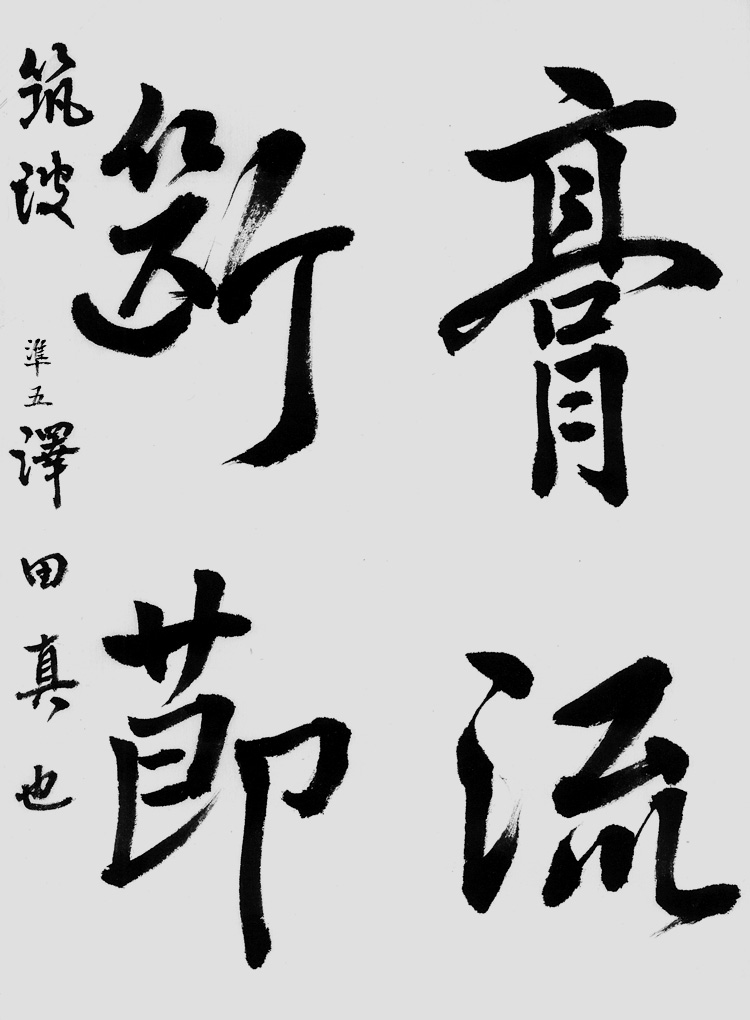 膏流
斷節
筑波 準五 澤田真也